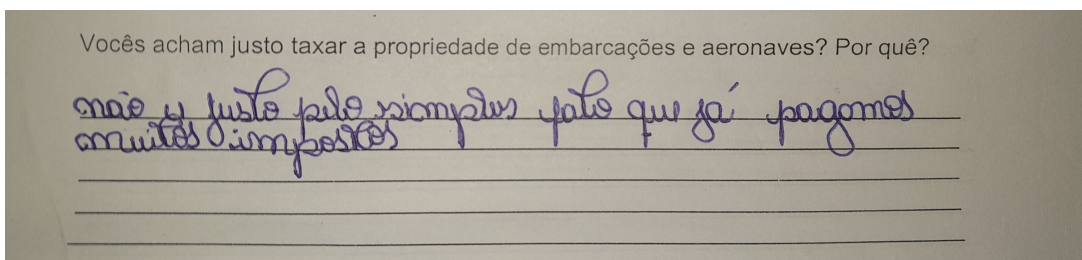 Vocês acham justo taxar a propriedade de embarcações e aeronaves? Por quê?
não é justo pelo simples fato que já pagamos
muitos impostos